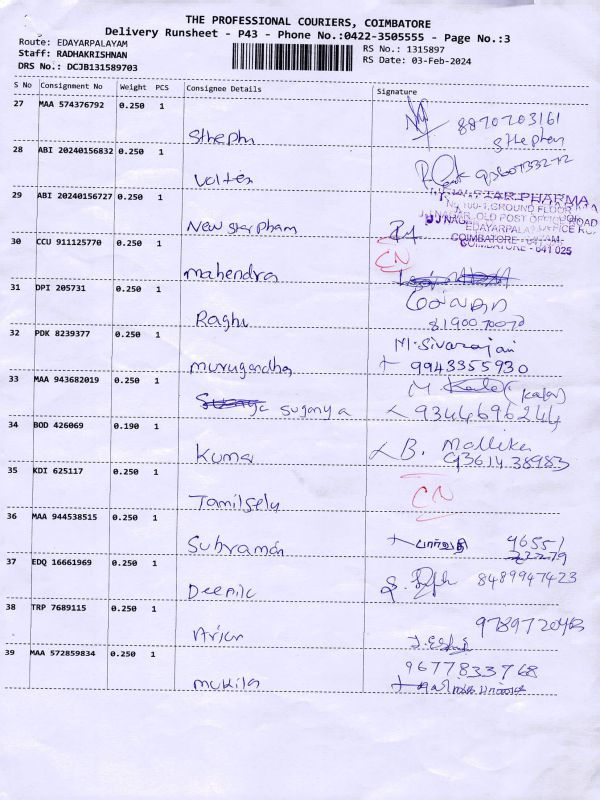 THE PROFESSIONAL COURIERS, COIMBATORE
Delivery Runsheet - P43 - Phone No.:0422-3505555 - Page No.:3
Route: EDAYARPALAYAM
Staff: RADHAKRISHNAN
DRS No.: DCJB131589703
RS No.: 1315897
RS Date: 03-Feb-2024
S No Consignment No Weight PCS Consignee Details Signature
27 MAA 574376792 0.250 1
Sthephn
8870703161
Sthephen
28 ABI 20240156832 0.250 1
Voltex
29 ABI 20240156727 0.250 1
New star pham
STAR PHARMA
GROUND FLOOR
OLD POST OFFICE ROAD
EDAYARPALAYAM
COIMBATORE - 641 025
30 CCU 911125770 0.250 1
CN
mahendra
31 DPI 205731 0.250 1
Raghu
8190070070
32 PDK 8239377 0.250 1
M. Sivarajani
murugandha
9943355930
33 MAA 943682019 0.250 1
suganya
M. Kala (kala)
9344696244
34 BOD 426069 0.190 1
Kumar
B. Mallika
9361438983
35 KDI 625117 0.250 1
CN
Tamilselv
36 MAA 944538515 0.250 1
Subraman
பார்வதி
96551
22279
37 EDQ 16661969 0.250 1
Deepik
8489947423
38 TRP 7689115 0.250 1
Arjun
9789720463
39 MAA 572859834 0.250 1
mukila
9677833768